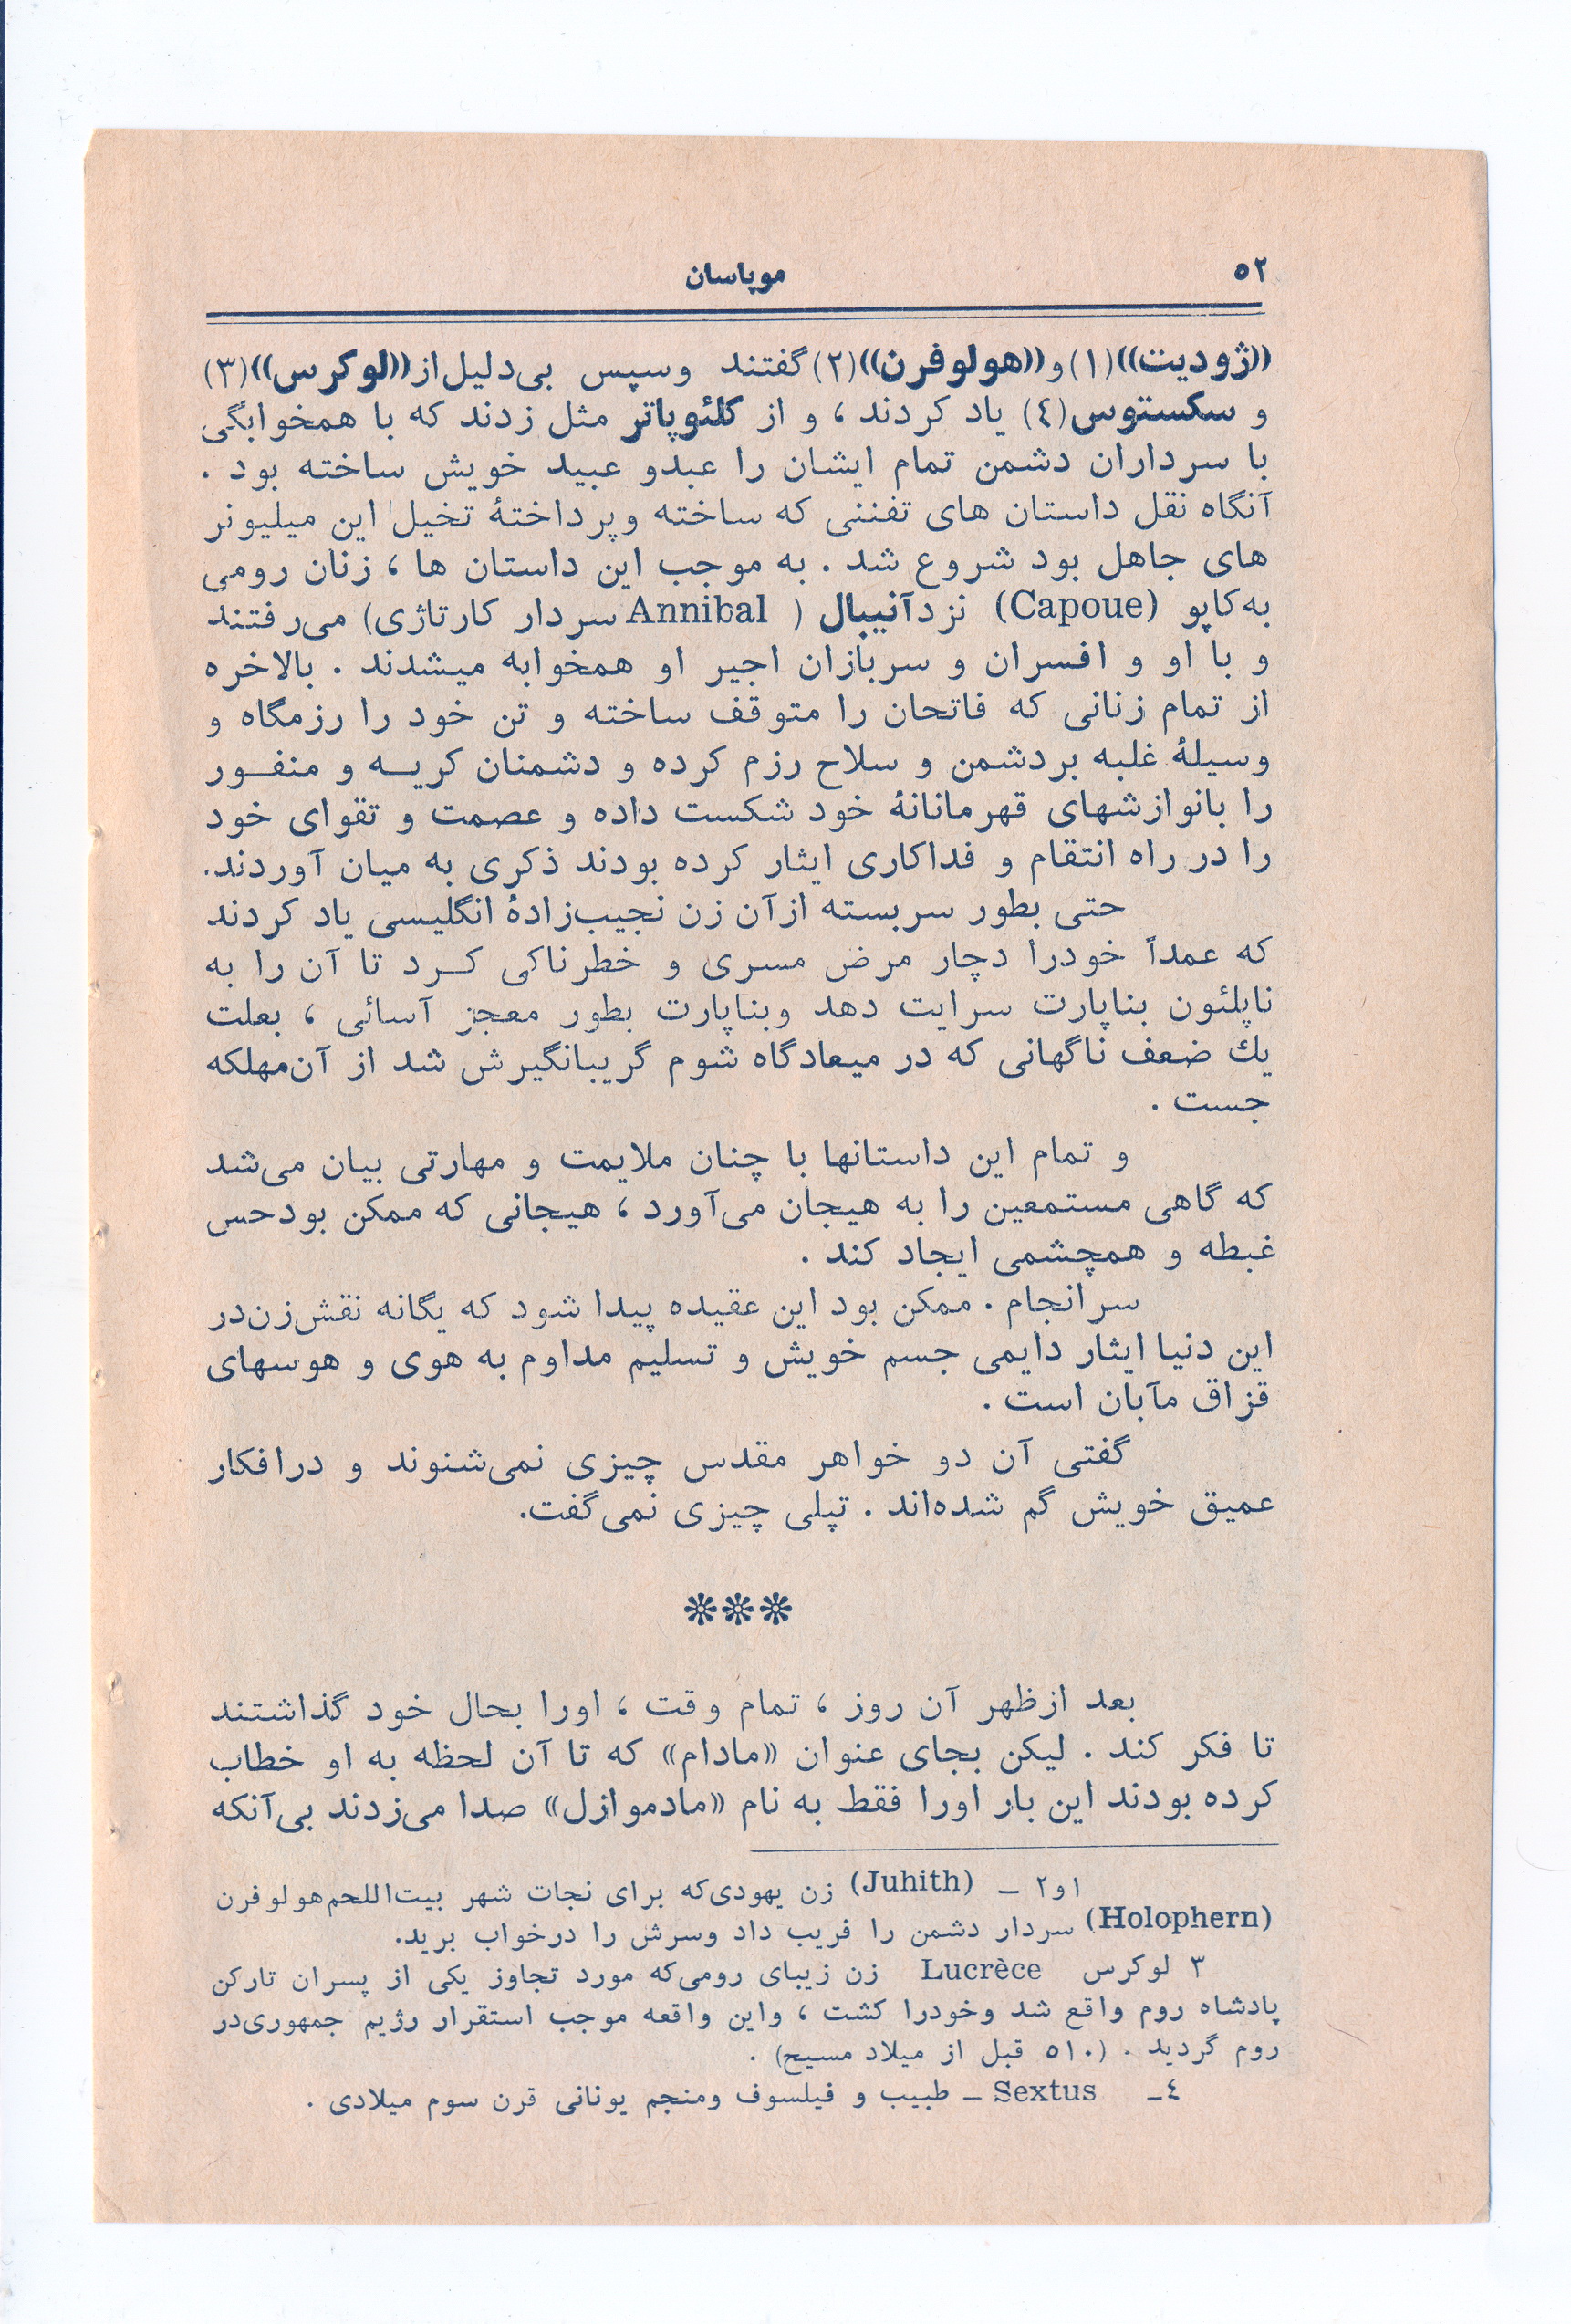 ۵۲
موپاسان
((ژودیت))(۱)و((هولوفرن))(۲)گفتند وسپس بی‌دلیل‌از((لوکرس))(۳)
و سکستوس(٤) یاد کردند ، و از کلئوپاتر مثل زدند که با همخوابگی
با سرداران دشمن تمام ایشان را عبدو عبید خویش ساخته بود .
آنگاه نقل داستان های تفننی که ساخته وپرداختهٔ تخیل این میلیونر
های جاهل بود شروع شد . به موجب این داستان ها ، زنان رومی
به‌کاپو (Capoue) نزدآنیبال ( Annibal سردار کارتاژی) می‌رفتند
و با او و افسران و سربازان اجیر او همخوابه میشدند . بالاخره
از تمام زنانی که فاتحان را متوقف ساخته و تن خود را رزمگاه و
وسیلهٔ غلبه بردشمن و سلاح رزم کرده و دشمنان کریـه و منفـور
را بانوازشهای قهرمانانهٔ خود شکست داده و عصمت و تقوای خود
را در راه انتقام و فداکاری ایثار کرده بودند ذکری به میان آوردند.
حتی بطور سربسته ازآن زن نجیب‌زادهٔ انگلیسی یاد کردند
که عمداً خودرا دچار مرض مسری و خطرناکی کـرد تا آن را به
ناپلئون بناپارت سرایت دهد وبناپارت بطور معجز آسائی ، بعلت
یك ضعف ناگهانی که در میعادگاه شوم گریبانگیرش شد از آن‌مهلکه
جست .
و تمام این داستانها با چنان ملایمت و مهارتی بیان می‌شد
که گاهی مستمعین را به هیجان می‌آورد ، هیجانی که ممکن بودحس
غبطه و همچشمی ایجاد کند .
سرانجام . ممکن بود این عقیده پیدا شود که یگانه نقش‌زن‌در
این دنیا ایثار دایمی جسم خویش و تسلیم مداوم به هوی و هوسهای
قزاق مآبان است .
گفتی آن دو خواهر مقدس چیزی نمی‌شنوند و درافکار
عمیق خویش گم شده‌اند . تپلی چیزی نمی‌گفت.
***
بعد ازظهر آن روز ، تمام وقت ، اورا بحال خود گذاشتند
تا فکر کند . لیکن بجای عنوان «مادام» که تا آن لحظه به او خطاب
کرده بودند این بار اورا فقط به نام «مادموازل» صدا می‌زدند بی‌آنکه
۱و۲ ـ (Juhith) زن یهودی‌که برای نجات شهر بیت‌اللحم‌هولوفرن
(Holophern) سردار دشمن را فریب داد وسرش را درخواب برید.
۳ لوکرس Lucrèce زن زیبای رومی‌که مورد تجاوز یکی از پسران تارکن
پادشاه روم واقع شد وخودرا کشت ، واین واقعه موجب استقرار رژیم جمهوری‌در
روم گردید . (۵۱۰ قبل از میلاد مسیح) .
٤ـ Sextus ـ طبیب و فیلسوف ومنجم یونانی قرن سوم میلادی .